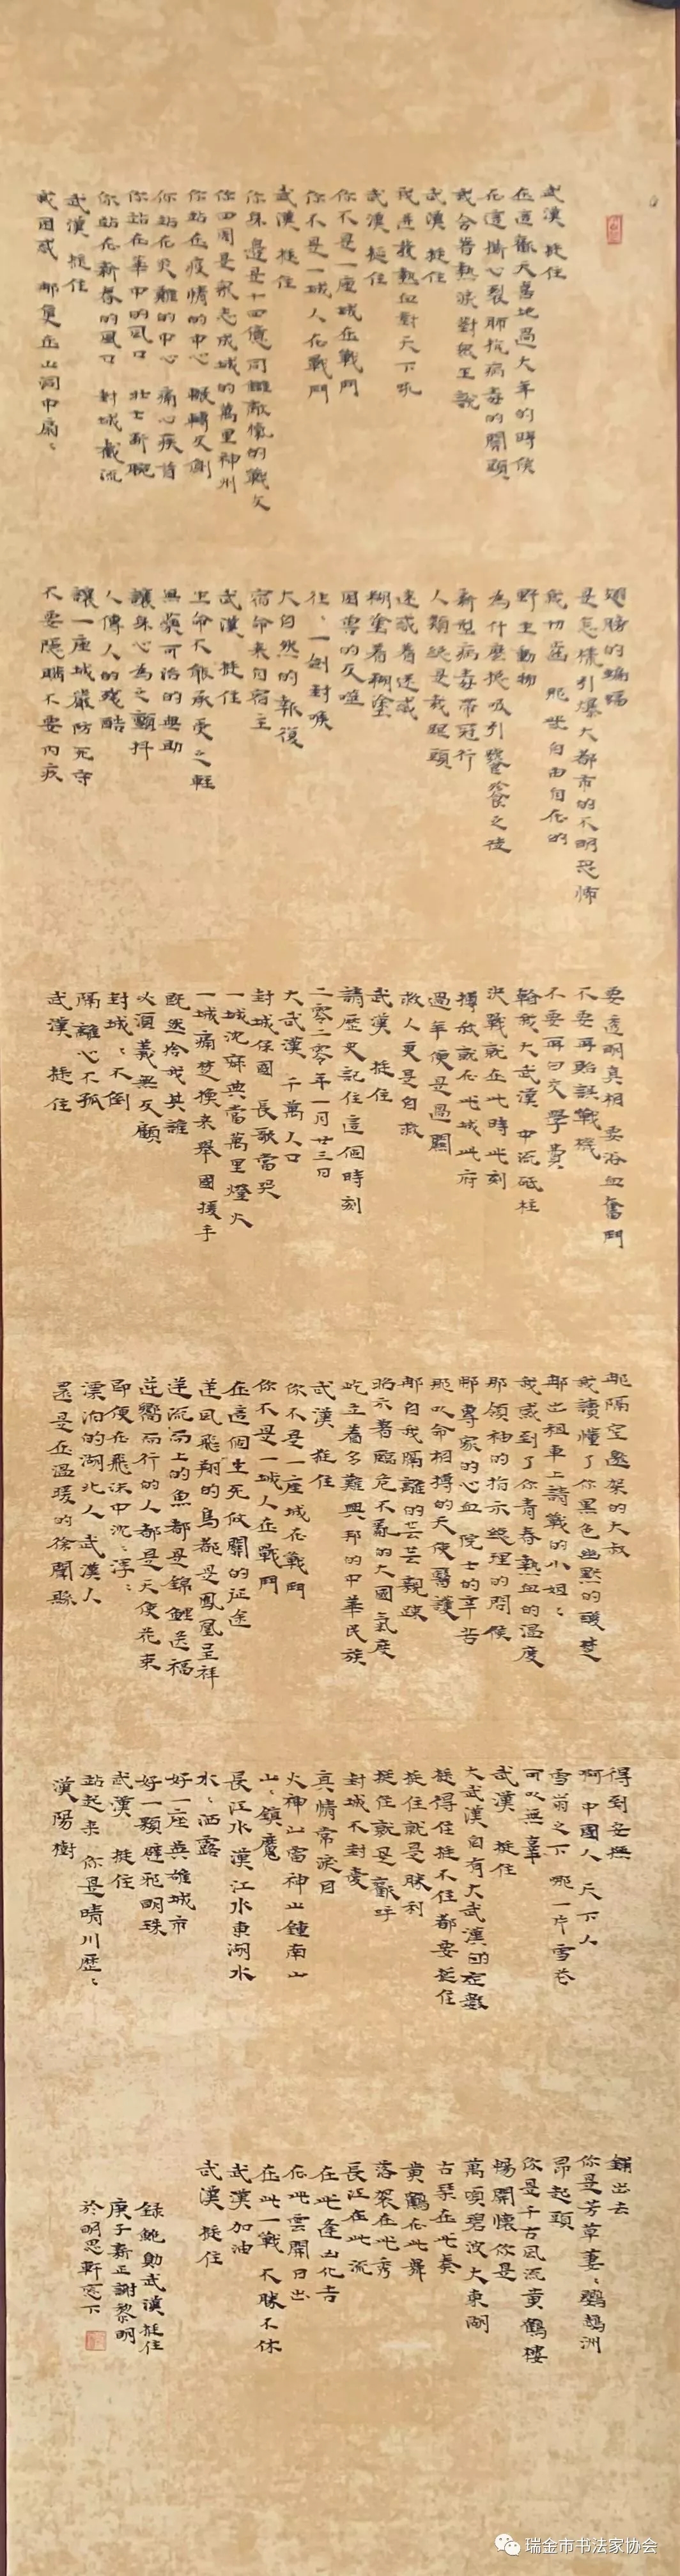 武漢 挺住
在這歡天舊地過大年的時候
在這撕心裂肺抗病毒的關頭
我含着熱淚對冥王說
我迸發熱血對天下吼
武漢 挺住
武漢 挺住
你不是一座城在戰鬥
你不是一城人在戰鬥
武漢 挺住
你身邊是十四億同仇敵愾的戰友
你四周是眾志成城的萬里神州
你站在疫情的中心 輾轉反側
你站在災難的中心 痛心疾首
你站在華中的風口 壯士斷腕
你站在新春的風口 封城截流
武漢 挺住
我困惑 那隻在山洞中扇:
翅膀的蝙蝠
是怎樣引爆大都市的不明恐怖
我切齒 那些自由自在的
野生動物
為什麼總吸引饕餮之徒
新型病毒帶冠行
人類總是栽跟頭
迷惑着迷惑
糊塗着糊塗
因專的反噬
往:一劍封喉
大自然的報復
宿命來自宿主
武漢 挺住
生命不能承受之輕
無藥可治的無助
讓身心為之顫抖
人傳人的殘酷
讓一座城嚴防死守
不要隱瞞不要內疚
要透明真相 要浴血奮鬥
不要再貽誤戰機
不要再曰交學費
翰我大武漢 中流砥柱
決戰就在此時此刻
搏殺就在此城此府
過年便是過關
救人更是自救
武漢 挺住
請歷史記住這個時刻
二零二零年一月廿三日
大武漢 千萬人口
封城保國 長歌當哭
一城沈寂典當萬里燈火
一城痛楚換來舉國援手
既然捨我其誰
必須義無反顧
封城:不倒
隔離心不孤
武漢 挺住
那隔空邀架的大叔
我讀懂了你黑色幽默的酸楚
那出租車上請戰的小姐:
我感到了你青春熱血的溫度
那領袖的指示總理的問候
那專家的心血 院士的辛苦
那以命相搏的天使醫護
那自我隔離的芸芸親疎
昭示着臨危不亂的大國氣度
屹立着多難興邦的中華民族
武漢 挺住
你不是一座城在戰鬥
你不是一城人在戰鬥
在這個生死攸關的征途
逆風飛翔的鳥都是鳳凰呈祥
逆流而上的魚都是錦鯉送福
逆嚮而行的人都是天使花束
即便在飛沫中沈:浮:
漂泊的湖北人 武漢人
還是在溫暖的徐聞縣
得到安撫
啊 中國人 天下人
雪崩之下 哪一片雪花
可以無辜
武漢 挺住
大武漢自有大武漢的定數
挺得住 挺不住都要挺住
挺住就是勝利
挺住就是歡呼
封城不封愛
真情常淚目
火神山雷神山鍾南山
山:鎮魔
長江水 漢江水 東湖水
水:洒露
好一座英雄城市
好一顆辟邪明珠
武漢 挺住
站起來 你是晴川歷:
漢陽樹
鋪出去
你是芳草萋:鸚鵡洲
昂起頭
你是千古風流黄鶴樓
暢開懷 你是
萬頃碧波大東湖
古琴在此奏
黄鶴在此舞
落梁在此秀
長江在此流
在此逢凶化吉
在此雲開日出
在此一戰 不勝不休
武漢加油
武漢 挺住
錄鮑勛武漢挺住
庚子新正謝黎明
於明思軒窗下
瑞金市书法家协会